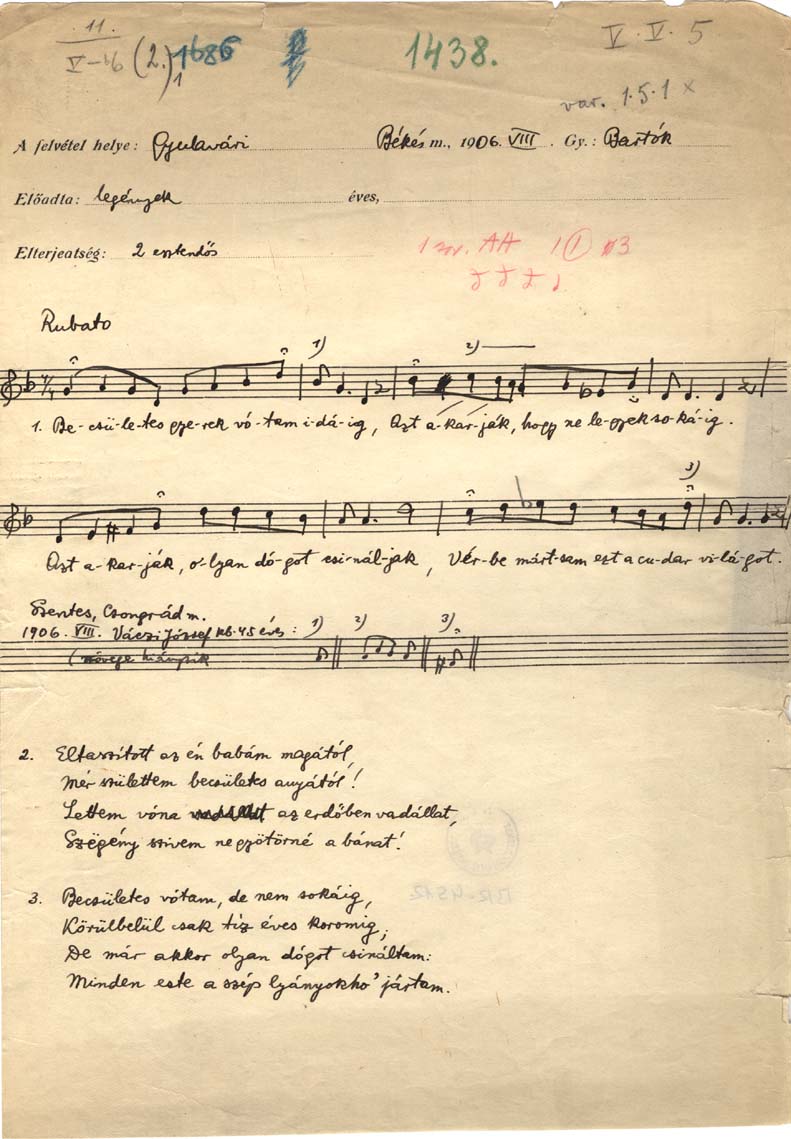 11.
V-16 (2.)1 1686 1438. V.V.5
var. 1.5.1 x
A felvétel helye: Gyulavári Békés m., 1906. VIII. Gy.: Bartók
Előadta: legények éves,
Elterjeatség: 2 esztendős
1 sor. AA 1 (1) 3
Rubato
1) 2)
1. Be-csü-le-tes gye-rek vó-tam i-dá-ig, Azt a-kar-ják, hogy ne le-gyek so-ká-ig.
3)
Azt a-kar-ják, o-lyan dó-got csi-nál-jak, Vér-be márt-sam ezt a cu-dar vi-lá-got.
Szentes, Csongrád m.
1906. VIII. Váczi József kb. 45 éves: 1) 2) 3)
(szövege hiányzik
2. Eltaszított az én babám magától,
Mér születtem becsületes anyától!
Lettem vóna az erdőben vadállat,
Szëgény szivem ne gyötörné a bánat!
3. Becsületes vótam, de nem sokáig,
Körülbelül csak tíz éves koromig,
De már akkor olyan dógot csináltam:
Minden este a szép lyányokhó' jártam.